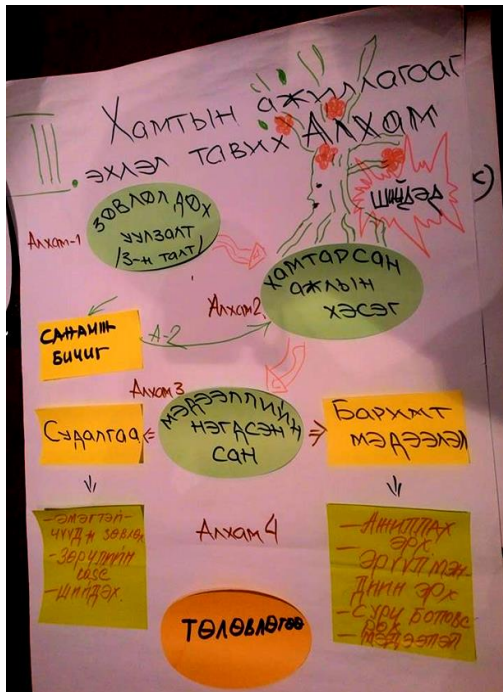 III.
Хамтын ажиллагааг
эхлэл тавих Алхам
шийдэл
Алхам-1
зөвлөлдөх
уулзалт
/3-н талт/
Алхам 2
хамтарсан
ажлын
хэсэг
санамж
бичиг
А-2
Алхам 3
мэдээллийн
нэгдсэн
сан
Судалгаа
Баримт
мэдээлэл
-эмэгтэй-
чүүдн зөвлөл
-Зөрчлийн
case
-шийдэх.
Алхам 4
-Ажиллах
эрх
-Эрүүл мэн
дийн эрх
-Сурч боловс
рох
-мэдээлэл
төлөвлөгөө